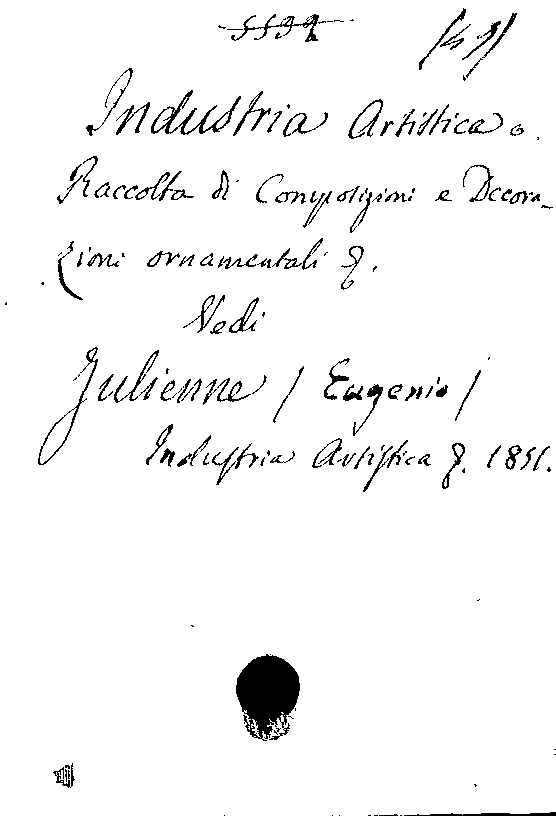 Industria Artistica o
Raccolta di Composizioni e Decora-
zioni ornamentali &.
Vedi
Julienne / Eugenio /
Industria Artistica &. 1851.